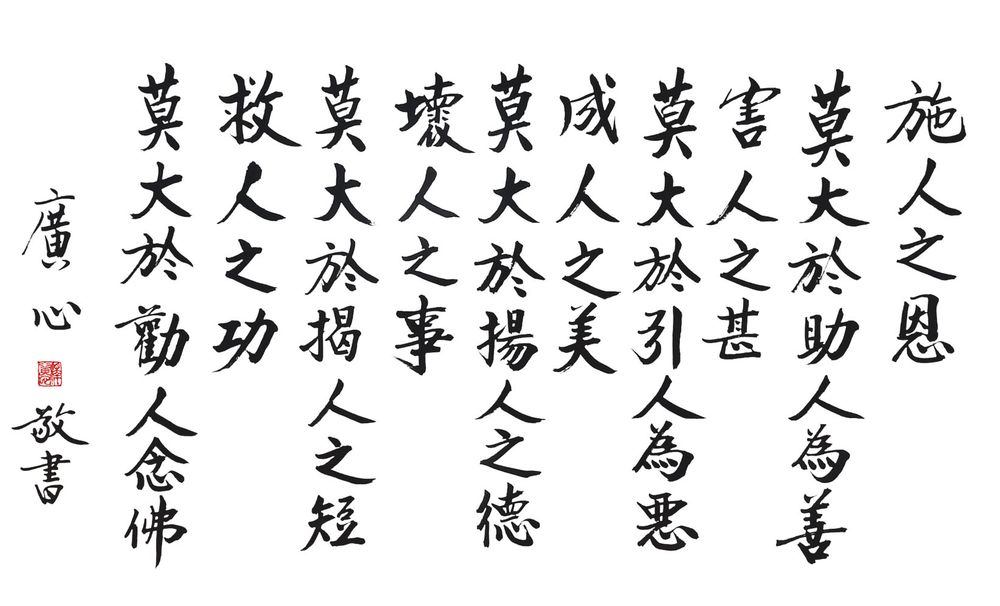 施人之恩
莫大於助人為善
害人之甚
莫大於引人為惡
成人之美
莫大於揚人之德
壞人之事
莫大於揭人之短
救人之功
莫大於勸人念佛
廣心敬書